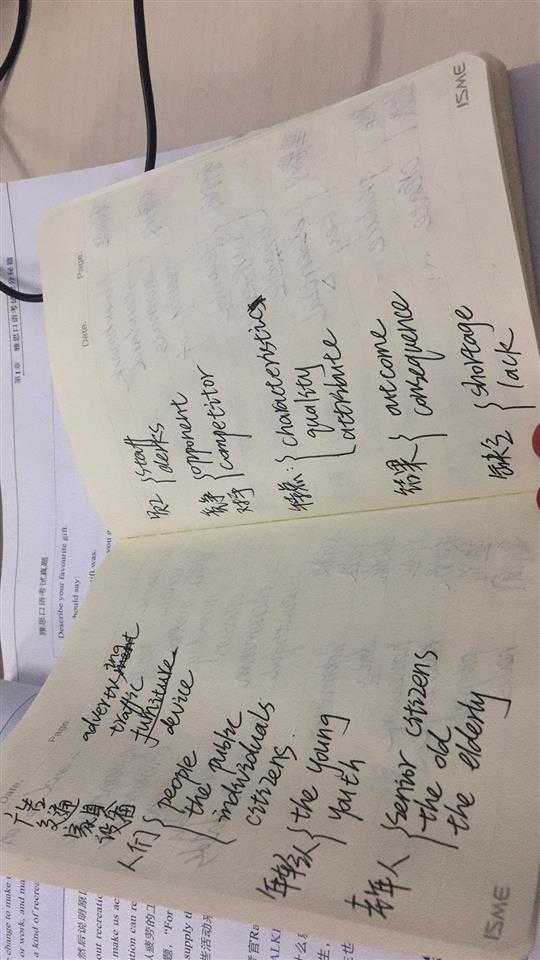 Page:
广告 advertising
交通 traffic
家具 furniture
设备 device
人们 { people
the public
individuals
citizens.
年轻人 { the young
youth
老年人 { senior citizens
the old
the elderly
ISME
Date. Page:
员工 { staff
clerks
竞争 { opponent
对手 competitor
特点: { characteristics
quality
attribute
结果 { outcome
consequence
缺乏 { shortage
lack
ISME
第1章 雅思口语考
雅思口语考试真题
Describe your favourite gift.
hould say:
ift was.
change to make
or work, and ma
a kind of recrea
然后说明原
out recreatio
make us ac
ation can re
从疲劳的工
题, "For
supply th
些活动